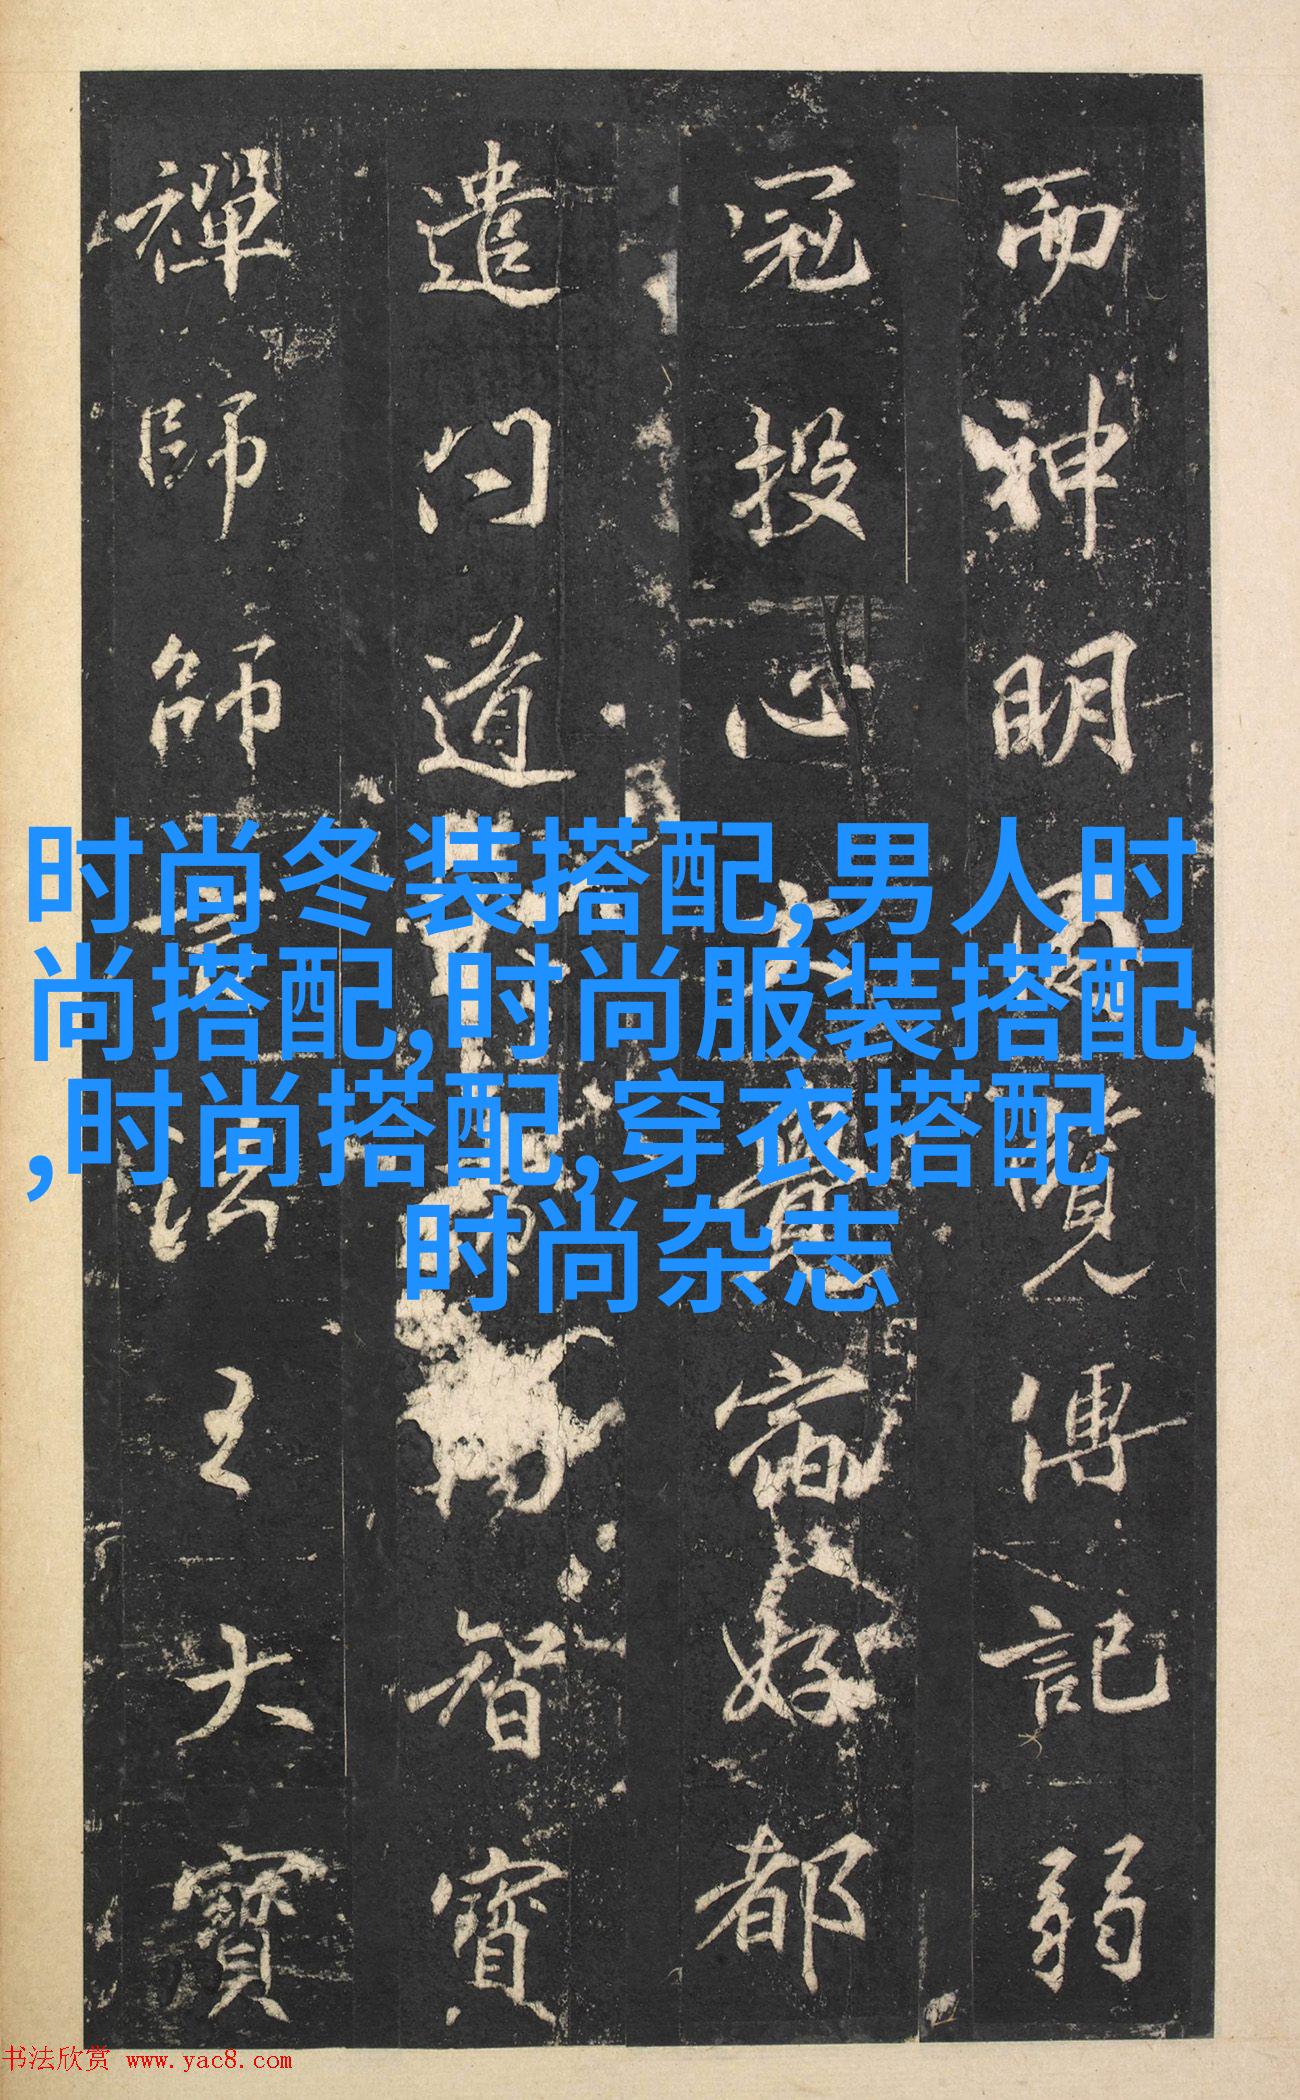 而神明覽傳記弱
冠投心覺宿好都
遣問道智寶
禪師師法王大寶
时尚冬装搭配,男人时
尚搭配,时尚服装搭配
,时尚搭配,穿衣搭配
时尚杂志
书法欣赏 www.yac8.com